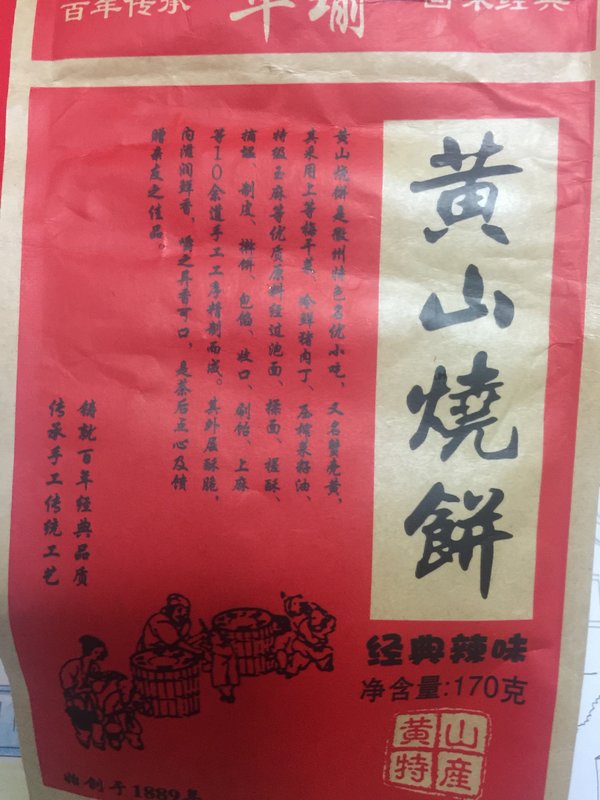 百年传承
华瑜
回味经典
黄山燒餅
黄山烧饼是徽州特色名优小吃，又名蟹壳黄，
其采用上等梅干菜、冷鲜猪肉丁、压榨菜籽油、
特级玉麻等优质原料经过泡面、揉面、搓酥、
摘坯、制皮、擀饼、包馅、收口、刷饴、上麻
等10余道手工工序精制而成。其外层酥脆，
内滋润鲜香，嚼之异香可口，是茶后点心及馈
赠亲友之佳品。
铸就百年经典品质
传承手工传统工艺
经典辣味
净含量:170克
黄山
特产
始创于1889年